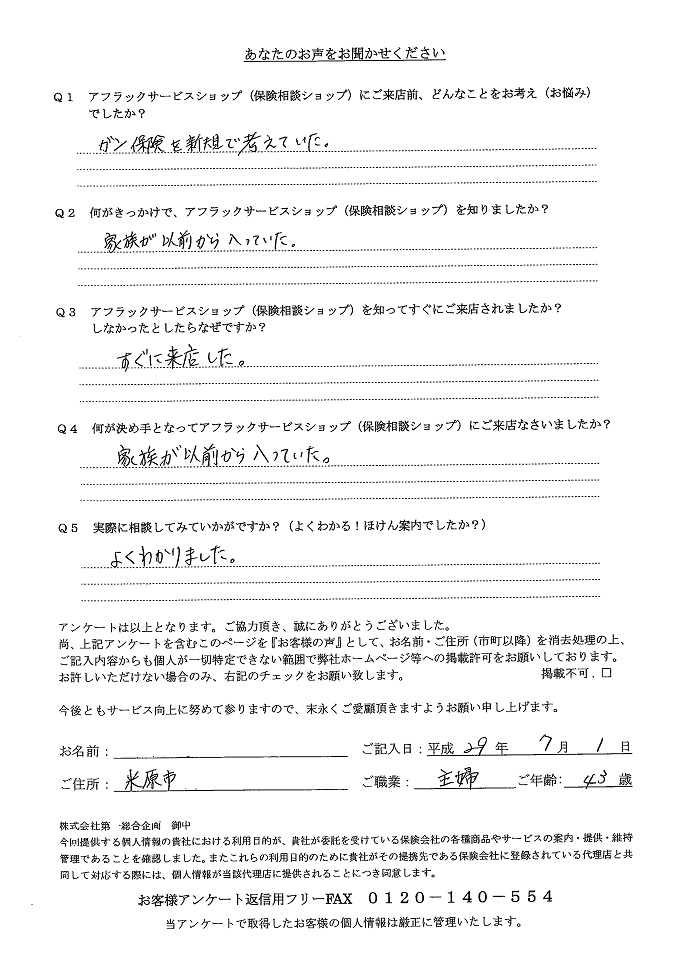 あなたのお声をお聞かせください
Q1 アフラックサービスショップ（保険相談ショップ）にご来店前、どんなことをお考え（お悩み）
でしたか？
ガン保険を新規で考えていた。
Q2 何がきっかけで、アフラックサービスショップ（保険相談ショップ）を知りましたか？
家族が以前から入っていた。
Q3 アフラックサービスショップ（保険相談ショップ）を知ってすぐにご来店されましたか？
しなかったとしたらなぜですか？
すぐに来店した。
Q4 何が決め手となってアフラックサービスショップ（保険相談ショップ）にご来店なさいましたか？
家族が以前から入っていた。
Q5 実際に相談してみていかがですか？（よくわかる！ほけん案内でしたか？）
よくわかりました。
アンケートは以上となります。ご協力頂き、誠にありがとうございました。
尚、上記アンケートを含むこのページを『お客様の声』として、お名前・ご住所（市町以降）を消去処理の上、
ご記入内容からも個人が一切特定できない範囲で弊社ホームページ等への掲載許可をお願いしております。
お許しいただけない場合のみ、右記のチェックをお願い致します。 掲載不可．□
今後ともサービス向上に努めて参りますので、末永くご愛顧頂きますようお願い申し上げます。
お名前： ご記入日：平成 29 年 7 月 1 日
ご住所： 米原市 ご職業： 主婦 ご年齢： 43 歳
株式会社第一総合企画 御中
今回提供する個人情報の貴社における利用目的が、貴社が委託を受けている保険会社の各種商品やサービスの案内・提供・維持
管理であることを確認しました。またこれらの利用目的のために貴社がその提携先である保険会社に登録されている代理店と共
同して対応する際には、個人情報が当該代理店に提供されることにつき同意します。
お客様アンケート返信用フリーFAX 0120－140－554
当アンケートで取得したお客様の個人情報は厳正に管理いたします。